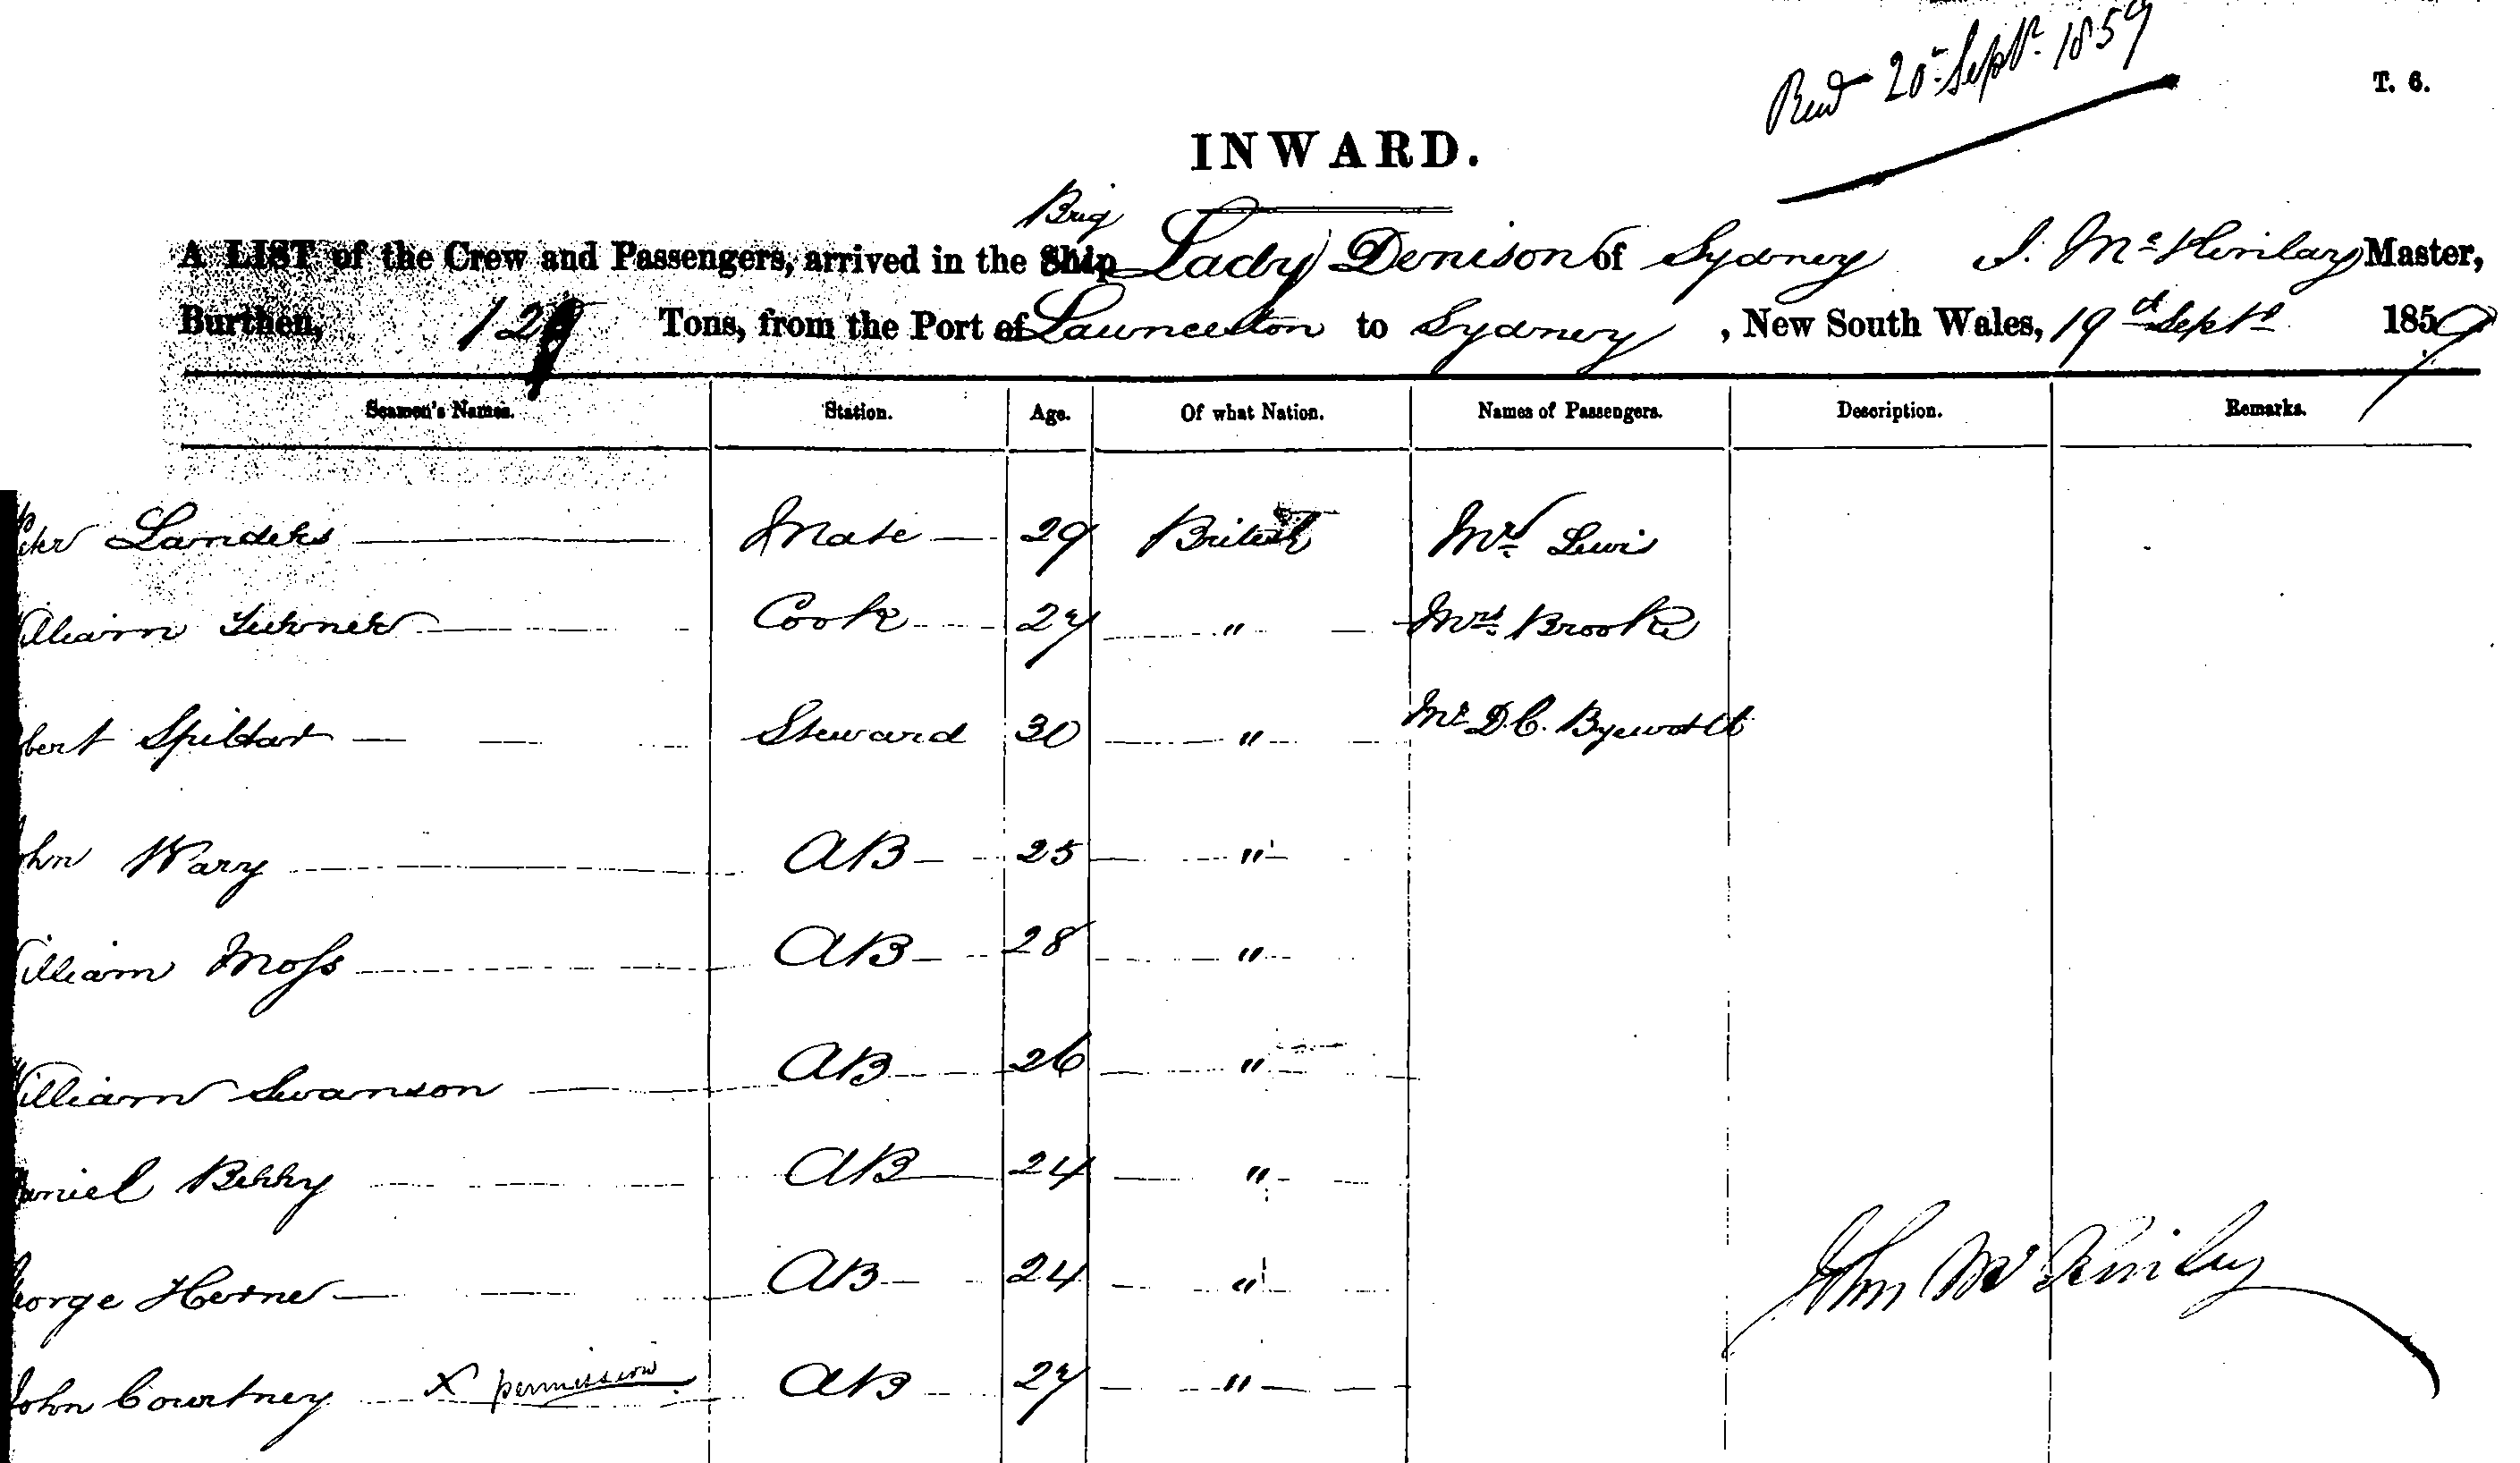 Recd 20 Septr. 1859
T. 6.
INWARD.
Brig
A LIST of the Crew and Passengers, arrived in the Ship Lady Denison of Sydney J. McKinlay Master,
Burthen, 129 Tons, from the Port of Launceston to Sydney, New South Wales, 19th Septr 1859
Seamen's Names. Station. Age. Of what Nation. Names of Passengers. Description. Remarks.
Landers Mate 29 British Mrs Lewis
illiam Turner Cook 27 " Mrs Brooke
bert Steward 30 " Mr D. C.
ohn Wary AB 25 "
illiam Moss AB 28 "
William Swanson AB 26 "
aniel Berry AB 24 "
eorge Horne AB 24 "
John McKinlay
John Courtney x permission AB 27 "